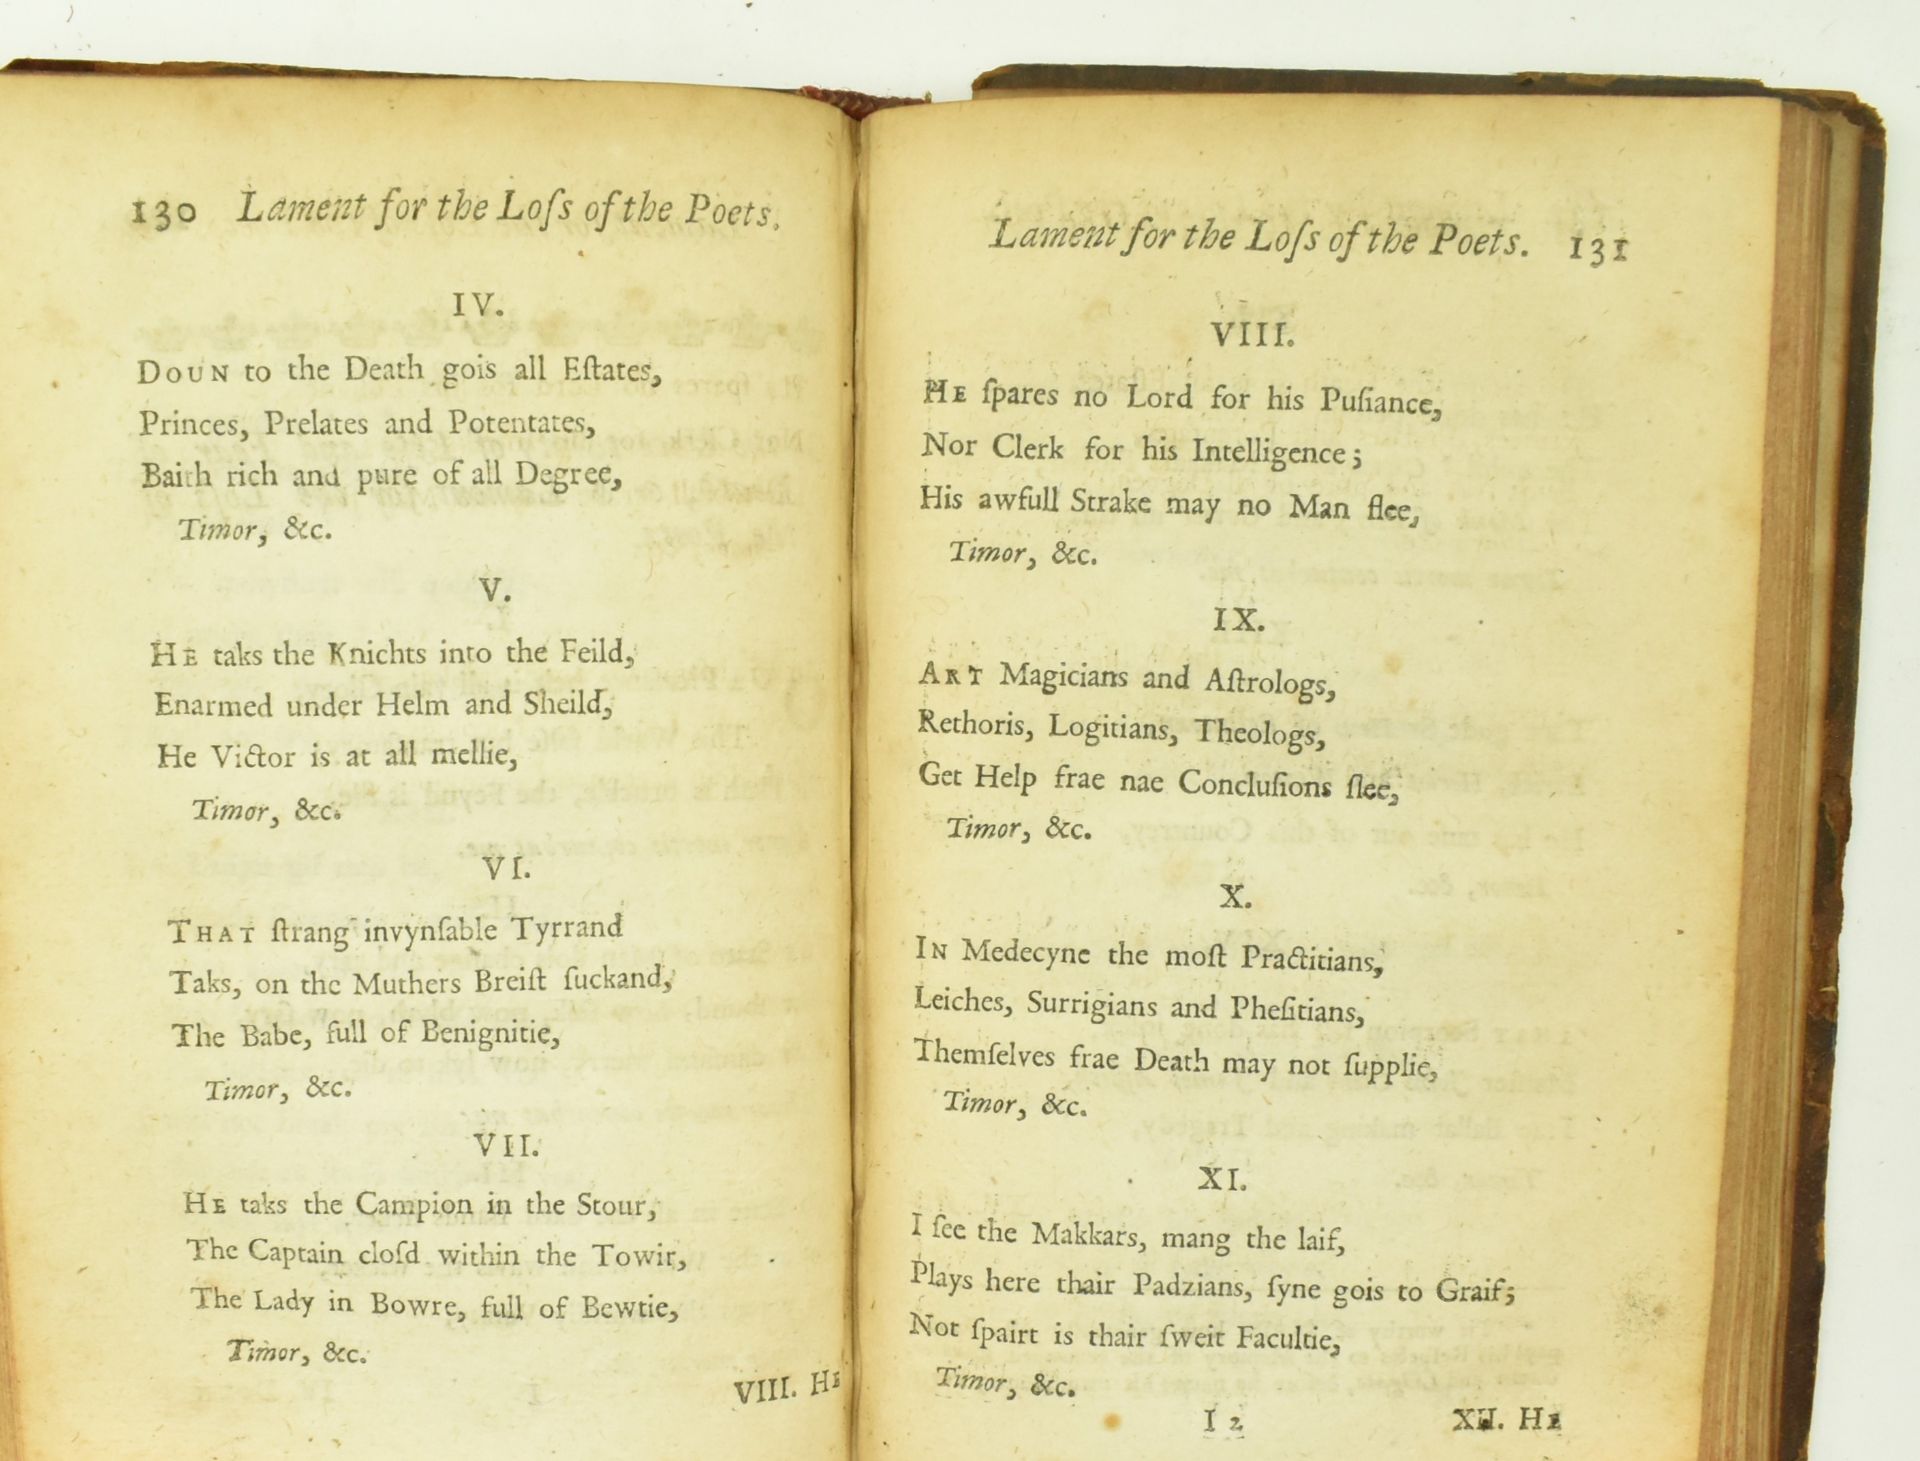 130 Lament for the Loſs of the Poets.
IV.
DOUN to the Death gois all Eſtates,
Princes, Prelates and Potentates,
Baith rich and pure of all Degree,
Timor, &c.
V.
HE taks the Knichts into the Feild,
Enarmed under Helm and Sheild,
He Victor is at all mellie,
Timor, &c.
VI.
THAT ſtrang invynſable Tyrrand
Taks, on the Muthers Breiſt ſuckand,
The Babe, full of Benignitie,
Timor, &c.
VII.
HE taks the Campion in the Stour,
The Captain cloſd within the Towir,
The Lady in Bowre, full of Bewtie,
Timor, &c.
VIII. HE
Lament for the Loſs of the Poets. 131
VIII.
HE ſpares no Lord for his Puſiance,
Nor Clerk for his Intelligence;
His awfull Strake may no Man flee,
Timor, &c.
IX.
ART Magicians and Aſtrologs,
Rethoris, Logitians, Theologs,
Get Help frae nae Concluſions ſlee,
Timor, &c.
X.
IN Medecyne the moſt Practitians,
Leiches, Surrigians and Pheſitians,
Themſelves frae Death may not ſupplie,
Timor, &c.
XI.
I ſee the Makkars, mang the laif,
Plays here thair Padzians, ſyne gois to Graif;
Not ſpairt is thair ſweit Facultie,
Timor, &c.
I 2 XII. HE